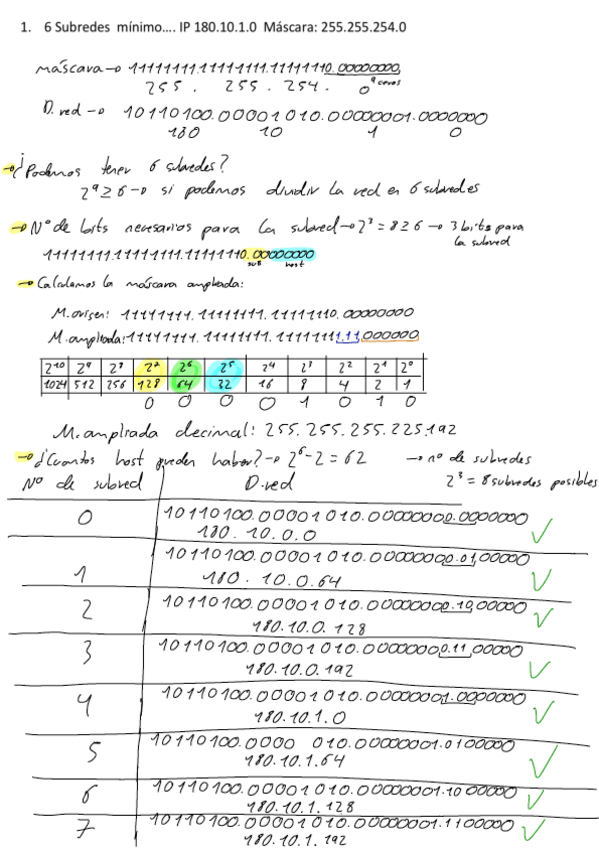 1. 6 Subredes mínimo.... IP 180.10.1.0 Máscara: 255.255.254.0
máscara→ 11111111.11111111.11111110.00000000
255 . 255 . 254 . 0 9 ceros
D. red → 10110100.00001010.00000001.0000000
180 10 1 0
→ ¿Podemos tener 6 subredes?
2⁹ ≥ 6 → si podemos dividir la red en 6 subredes
→ Nº de bits necesarios para la subred → 2³ = 8 ≥ 6 → 3 bits para la subred
11111111.11111111.11111110.00000000
sub host
→ Calculamos la máscara ampliada:
M. origen: 11111111.11111111.11111110.00000000
M. ampliada: 11111111.11111111.11111111.11,000000
2¹⁰ 2⁹ 2⁸ 2⁷ 2⁶ 2⁵ 2⁴ 2³ 2² 2¹ 2⁰
1024 512 256 128 64 32 16 8 4 2 1
0 0 0 0 1 0 1 0
M. ampliada decimal: 255.255.255.225.192
→ ¿Cuantos host pueden haber? → 2⁶-2 = 62 → nº de subredes
Nº de subred D. red 2³ = 8 subredes posibles
0 10110100.00001010.00000000.0000000 ✓
180. 10. 0. 0
1 10110100.00001010.00000000.01,00000 ✓
180 . 10. 0. 64
2 10110100.00001010.00000000.10,00000 ✓
180.10.0.128
3 10110100.00001010.00000000.11,00000 ✓
180.10.0.192
4 10110100.00001010.00000001.0000000 ✓
180.10.1.0
5 10110100.0000 010.00000001.0100000 ✓
180.10.1.64
6 10110100.00001010.00000001.1000000 ✓
180.10.1.128
7 10110100.00001010.00000001.1100000 ✓
180.10.1.192